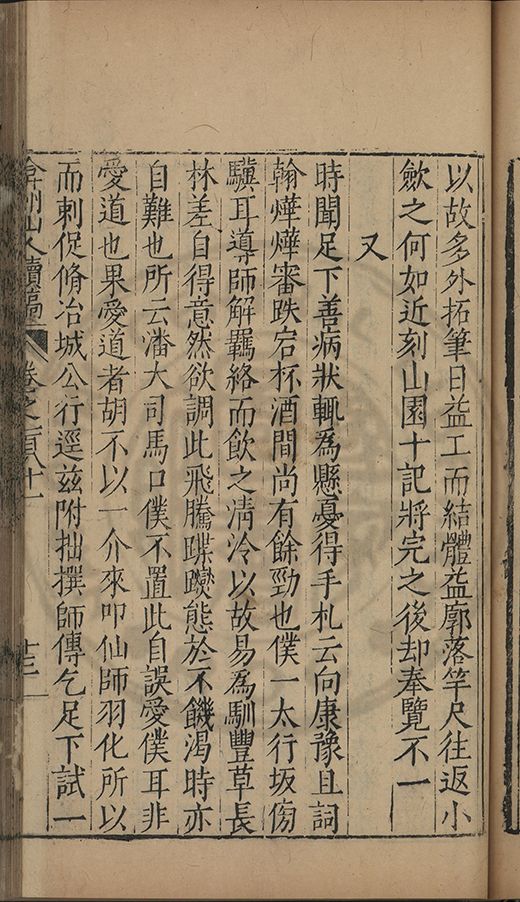 以故多外拓筆日益工而結體益廓落竿尺往返小
歛之何如近刻山園十記將完之後却奉覽不一
又
時聞足下善病狀輒為懸憂得手札云向康豫且詞
翰燁燁審跌宕杯酒間尚有餘勁也僕一太行坂傍
驥耳導師解羈絡而飲之清泠以故易為馴豐草長
林差自得意然欲調此飛騰蹀躞態於不饑渴時亦
自難也所云潘大司馬口僕不置此自誤愛僕耳非
愛道也果愛道者胡不以一介來叩仙師羽化所以
而刺促脩冶城公行逕茲附拙撰師傳乞足下試一
弇州山人續稿 卷之一百八十一 廿三